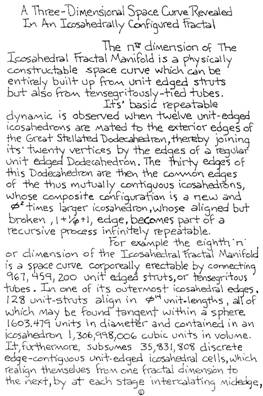 A Three-Dimensional Space Curve Revealed
In An Icosahedrally Configured Fractal
The nth dimension of The
Icosahedral Fractal Manifold is a physically
constructable space curve which can be
entirely built up from unit edged struts
but also from tensegritously-tied tubes.
Its' basic repeatable
dynamic is observed when twelve unit-edged
icosahedrons are mated to the exterior edges of
the Great Stellated Dodecahedron, thereby joining
its' twenty vertices by the edges of a regular
unit edged Dodecahedron. The thirty edges of
this Dodecahedron are then the common edges
of the thus mutually contiguous icosahedrons,
whose composite configuration is a new and
times larger icosahedron, whose aligned but
broken, 1+1/φ+1, edge, becomes part of a
recursive process infinitely repeatable.
For example the eighth 'n'
or dimension of the Icosahedral Fractal Manifold
is a space curve corporally erectable by connecting
967,459,200 unit edged struts, or tensegritous
tubes. In one of its outermost icosahedral edges,
128 unit-struts align in unit-lengths, all of
which may be found tangent within a sphere
1603.479 units in diameter and contained in an
icosahedron 1,306,998,006 cubic units in volume.
It, furthermore, subsumes 35,831,808 discrete
edge-contiguous unit-edged icosahedral cells, which
realign themselves from one fractal dimension to
the next, by at each stage intercalating midedge,